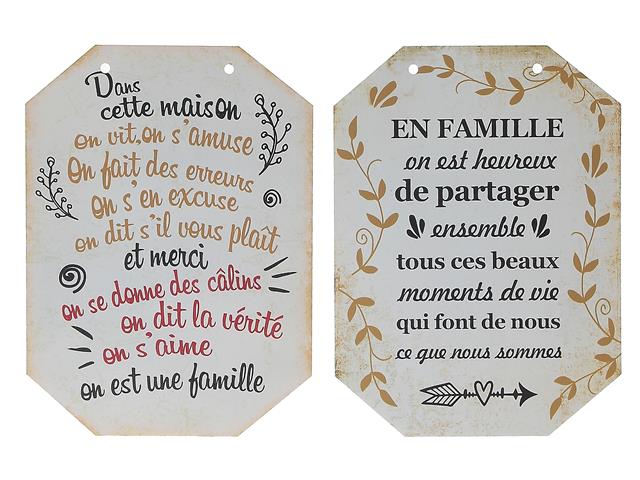 Dans
cette maison
on vit, on s'amuse
On fait des erreurs
On s'en excuse
on dit s'il vous plaît
et merci
on se donne des câlins
on dit la vérité
on s'aime
on est une famille
EN FAMILLE
on est heureux
de partager
ensemble
tous ces beaux
moments de vie
qui font de nous
ce que nous sommes